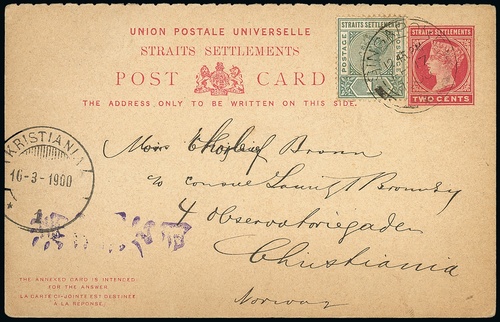 UNION POSTALE UNIVERSELLE
STRAITS SETTLEMENTS
POST CARD
THE ADDRESS ONLY TO BE WRITTEN ON THIS SIDE.
STRAITS SETTLEMENTS
POSTAGE
STRAITS SETTLEMENTS
TWO CENTS
KRISTIANIA
16-3-1900
1
Miss Brown
c/o Consul Bromby
4 Observatoriegaden
Christiania
Norway
THE ANNEXED CARD IS INTENDED
FOR THE ANSWER.
LA CARTE CI-JOINTE EST DESTINÉE
À LA RÉPONSE.